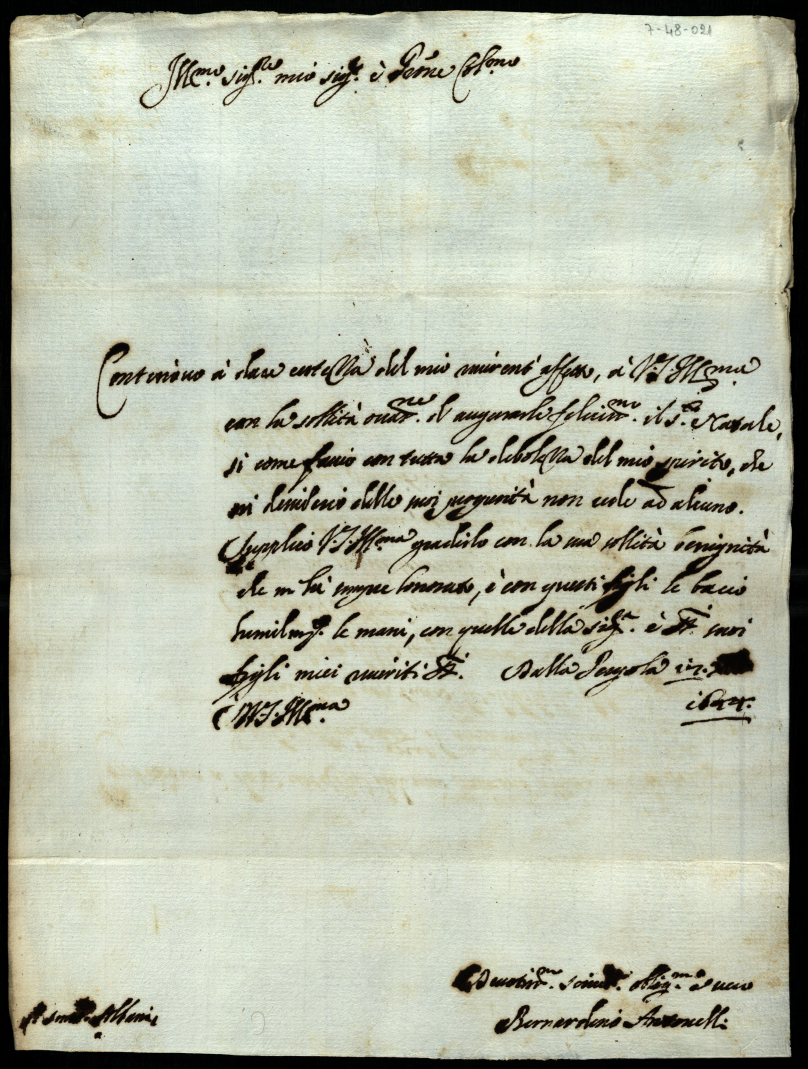 7-48-021
Ill.mo sig.re mio sig.r è Prone Col.mo
Continòuo à dare certezza del mio riverent' affetto, à V.S. Ill.ma
con la sollità de augurarle felicis.me il S. Natale,
si come faccio con tutta la debolezza del mio spirito, che
in desiderio delle sue prosperità non cede ad alcuno.
Supplico V.S. Ill.ma gradirlo con la sua sollità benignità
che m'hà sempre honorato, è con questi figli le bacio
humilm.te le mani, con quelle della sig.ra è suoi
figli miei riveriti Dalla Pergola
V.S. Ill.ma
Devotis.mo Oblig.mo è vero
Albani Bernardino Antonelli